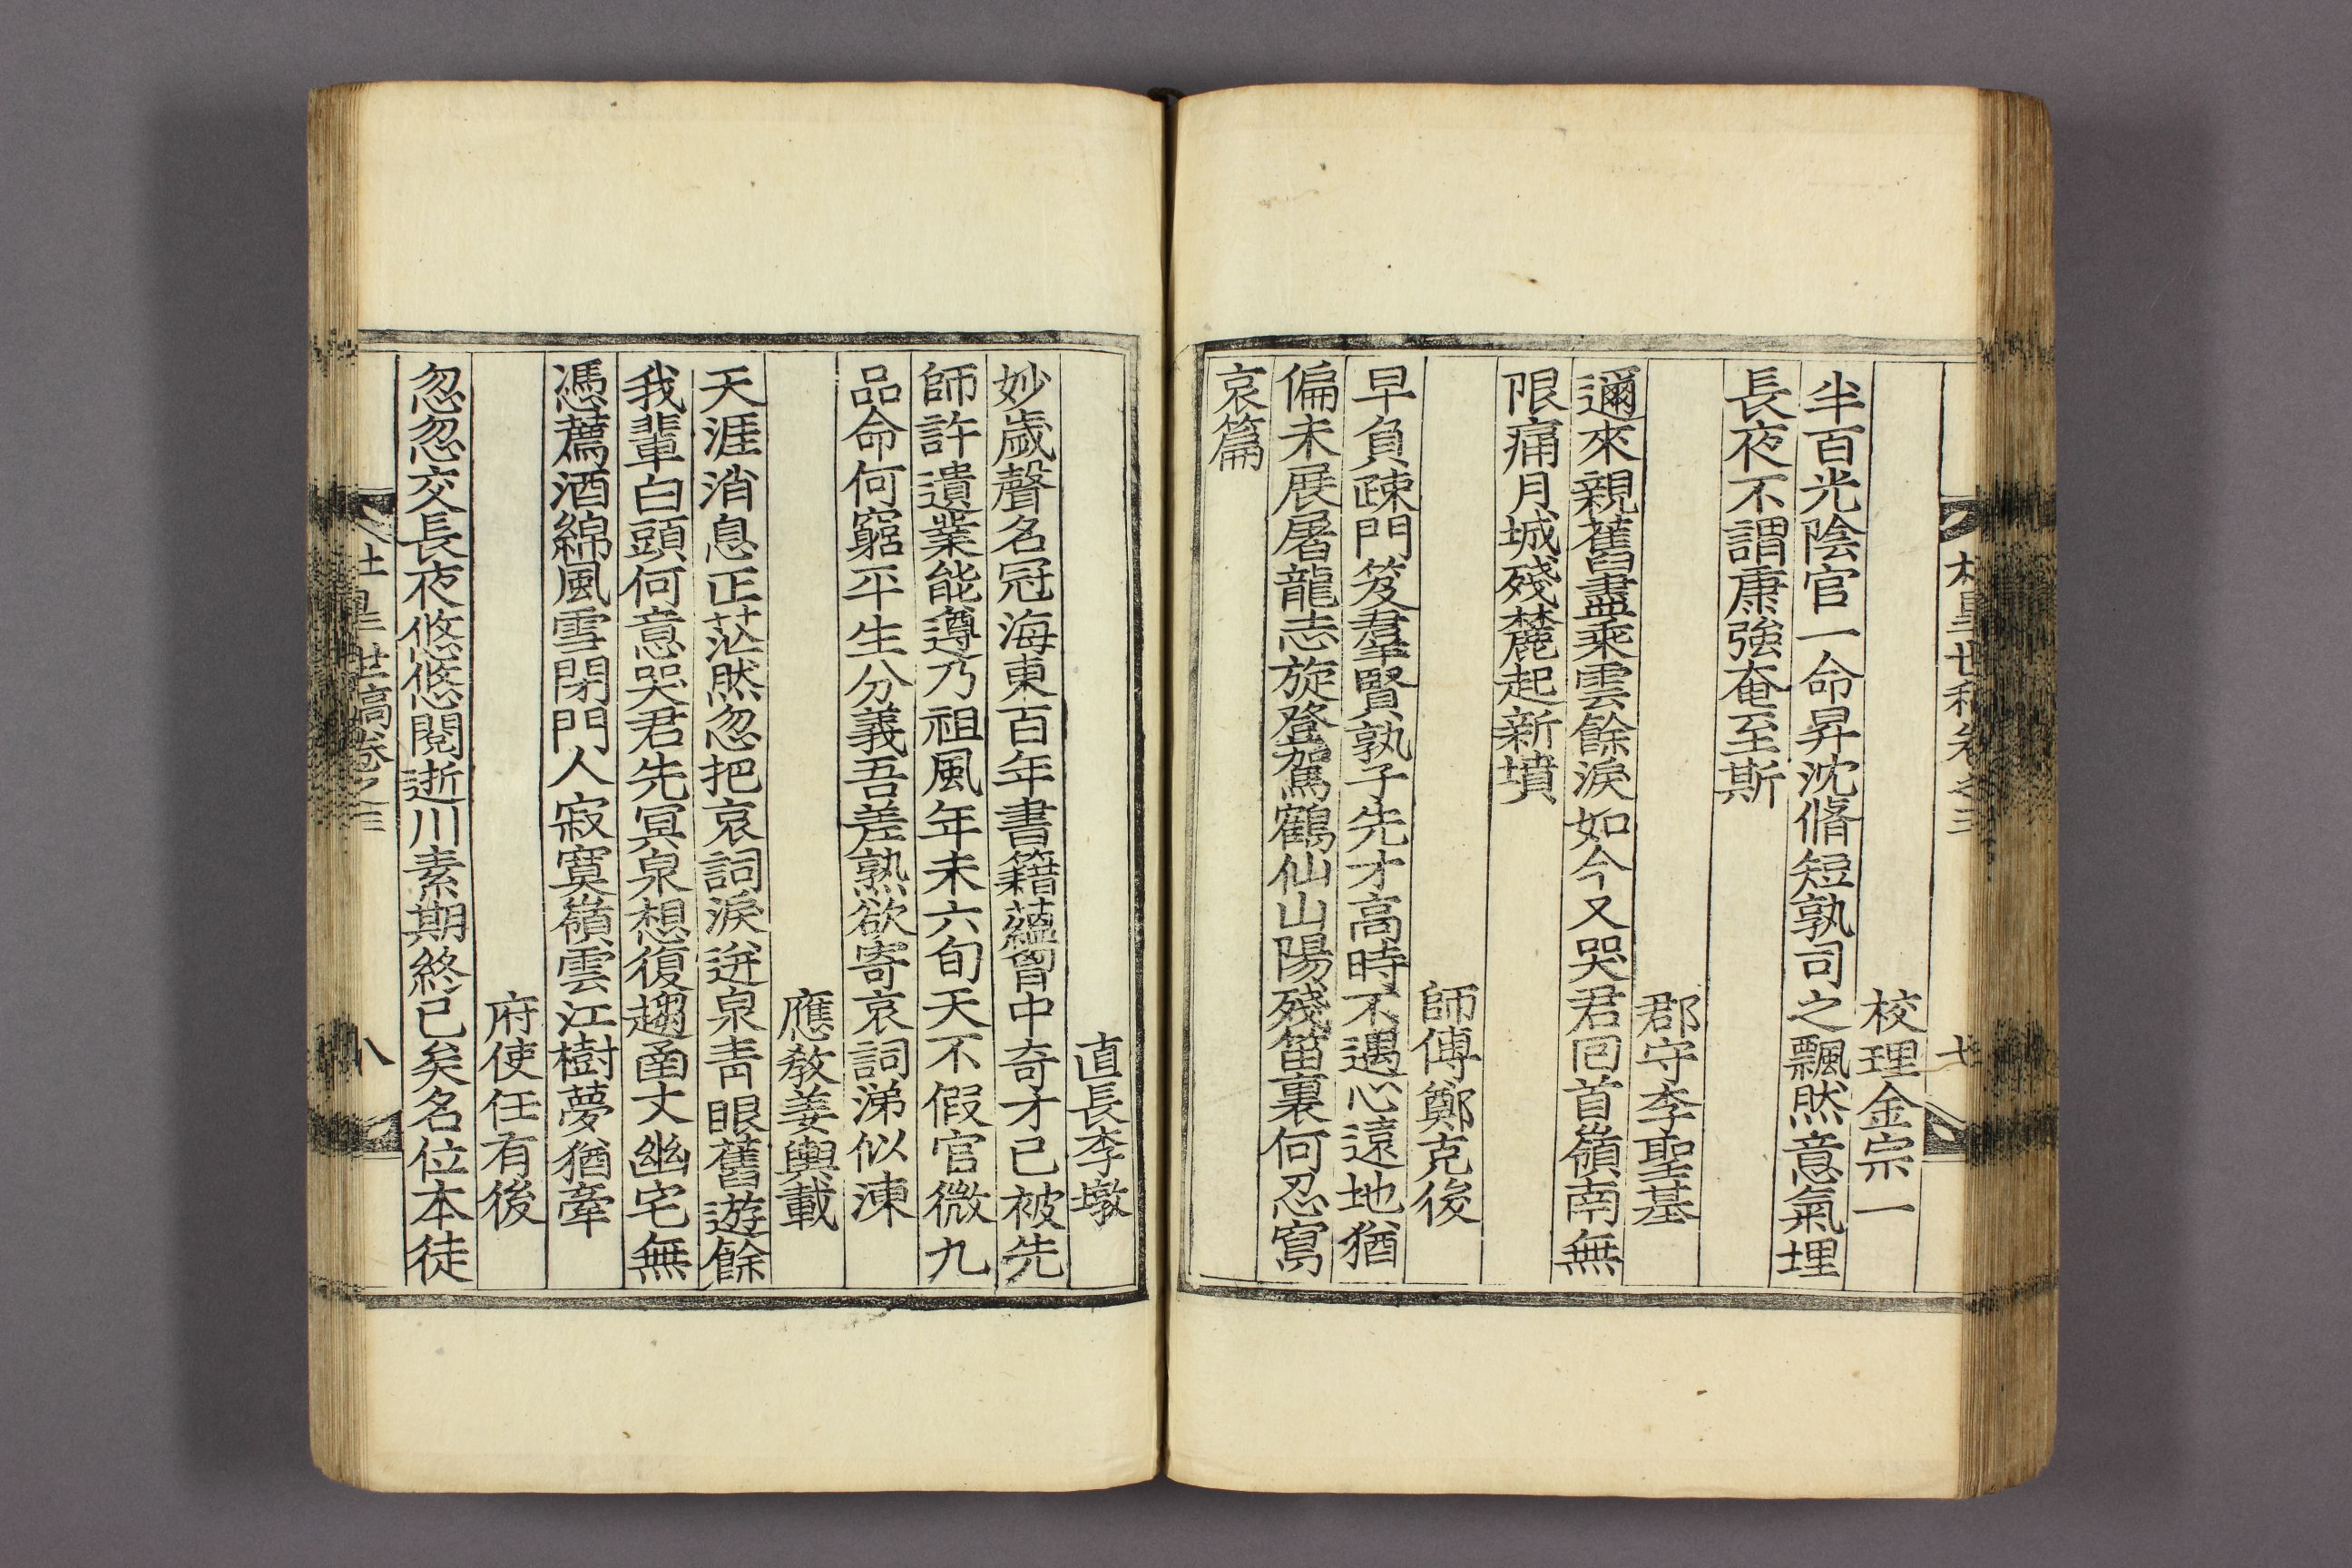 校理金宗一
半百光陰官一命昇沈脩短孰司之飄然意氣埋
長夜不謂康強奄至斯
郡守李聖基
邇來親舊盡乘雲餘淚如今又哭君回首嶺南無
限痛月城殘麓起新墳
師傅鄭克後
早負疎門笈羣賢孰子先才高時不遇心遠地猶
偏未展屠龍志旋登駕鶴仙山陽殘笛裏何忍寫
哀篇
直長李墩
妙歲聲名冠海東百年書籍蘊胷中奇才已被先
師許遺業能遵乃祖風年未六旬天不假官微九
品命何窮平生分義吾差熟欲寄哀詞涕似涷
應敎姜輿載
天涯消息正茫然忽把哀詞淚迸泉靑眼舊遊餘
我輩白頭何意哭君先冥泉想復趨函丈幽宅無
憑薦酒綿風雪閉門人寂寞嶺雲江樹夢猶牽
府使任有後
忽忽交長夜悠悠閱逝川素期終已矣名位本徒
世稿卷之三
八